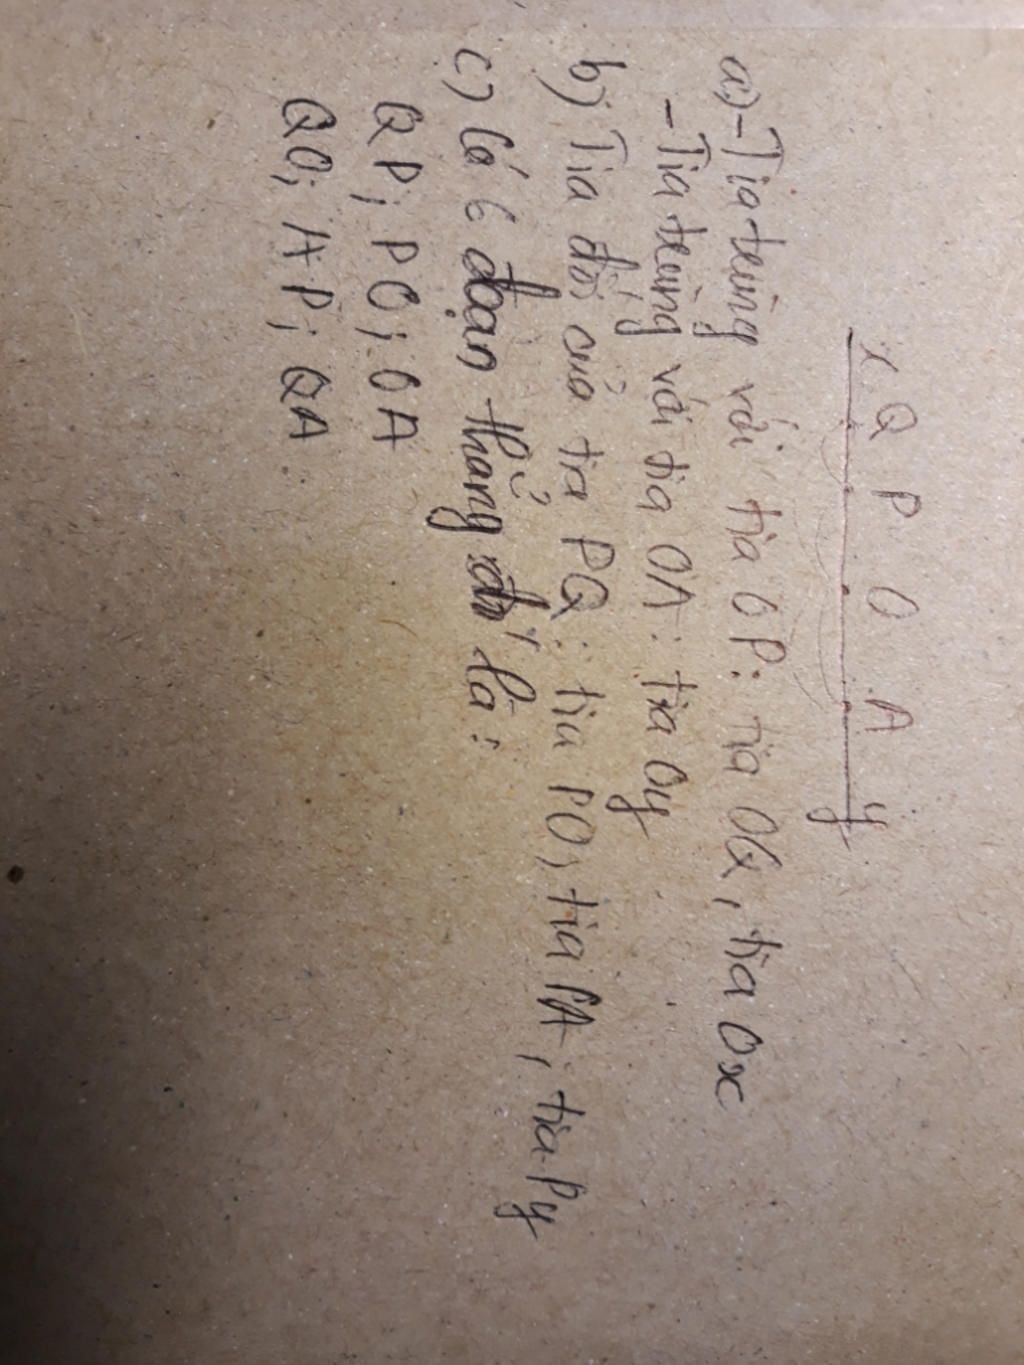 x Q P O A y
a) - Tia trùng với tia OP: tia OQ, tia Ox
- Tia trùng với tia OA: tia Oy
b) Tia đối của tia PQ: tia PO, tia PA, tia Py
c) Có 6 đoạn thẳng đó là:
QP; PO; OA
QO; AP; QA